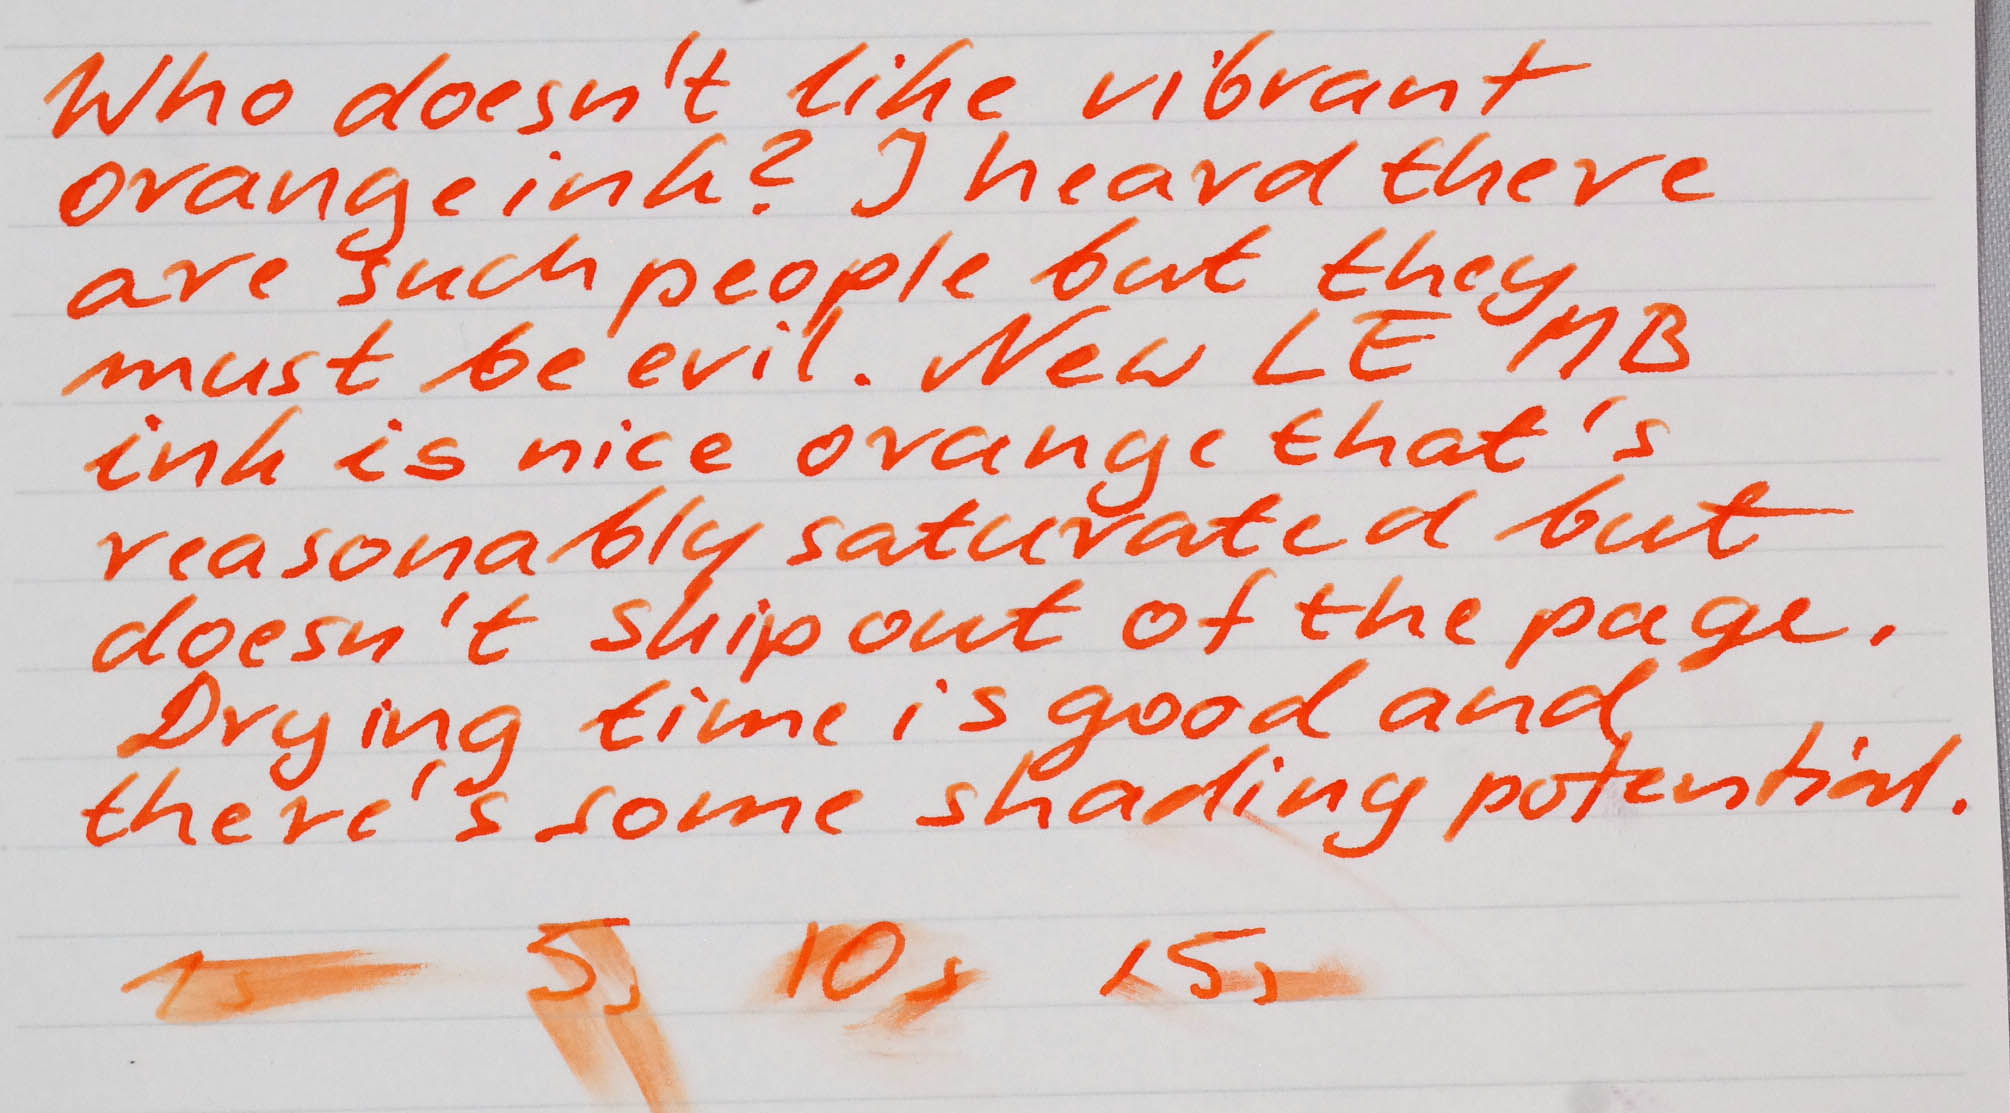 Who doesn't like vibrant
orange ink? I heard there
are such people but they
must be evil. New LE MB
ink is nice orange that's
reasonably saturated but
doesn't skip out of the page.
Drying time is good and
there's some shading potential.
1s 5s 10s 15s